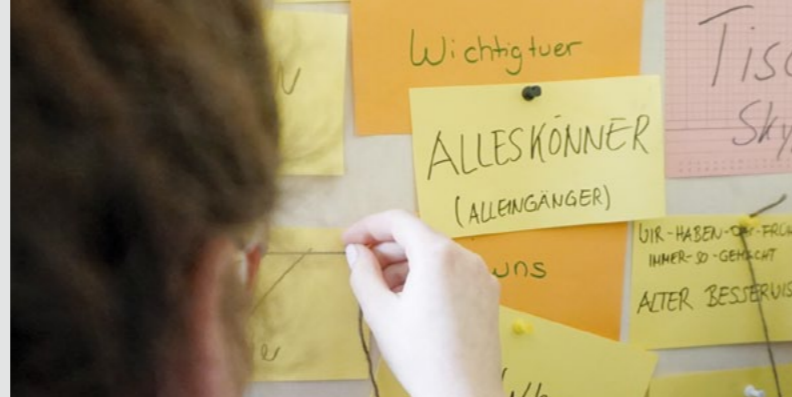 Wichtigtuer
ALLESKÖNNER
(ALLEINGÄNGER)
uns
WIR-HABEN-DAS-FRÜH
IMMER-SO-GEMACHT
ALTER BESSERWIS
Tisc
Sky